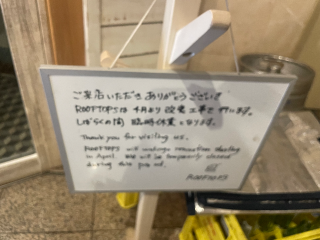 ご来店いただき ありがとうございます
ROOFTOPSは 4月より 改装工事で
しばらくの間 臨時休業 となります。
Thank you for visiting us.
ROOFTOPS will undergo renovation starting
in April. We will be temporarily closed
during this period.
ROOFTOPS